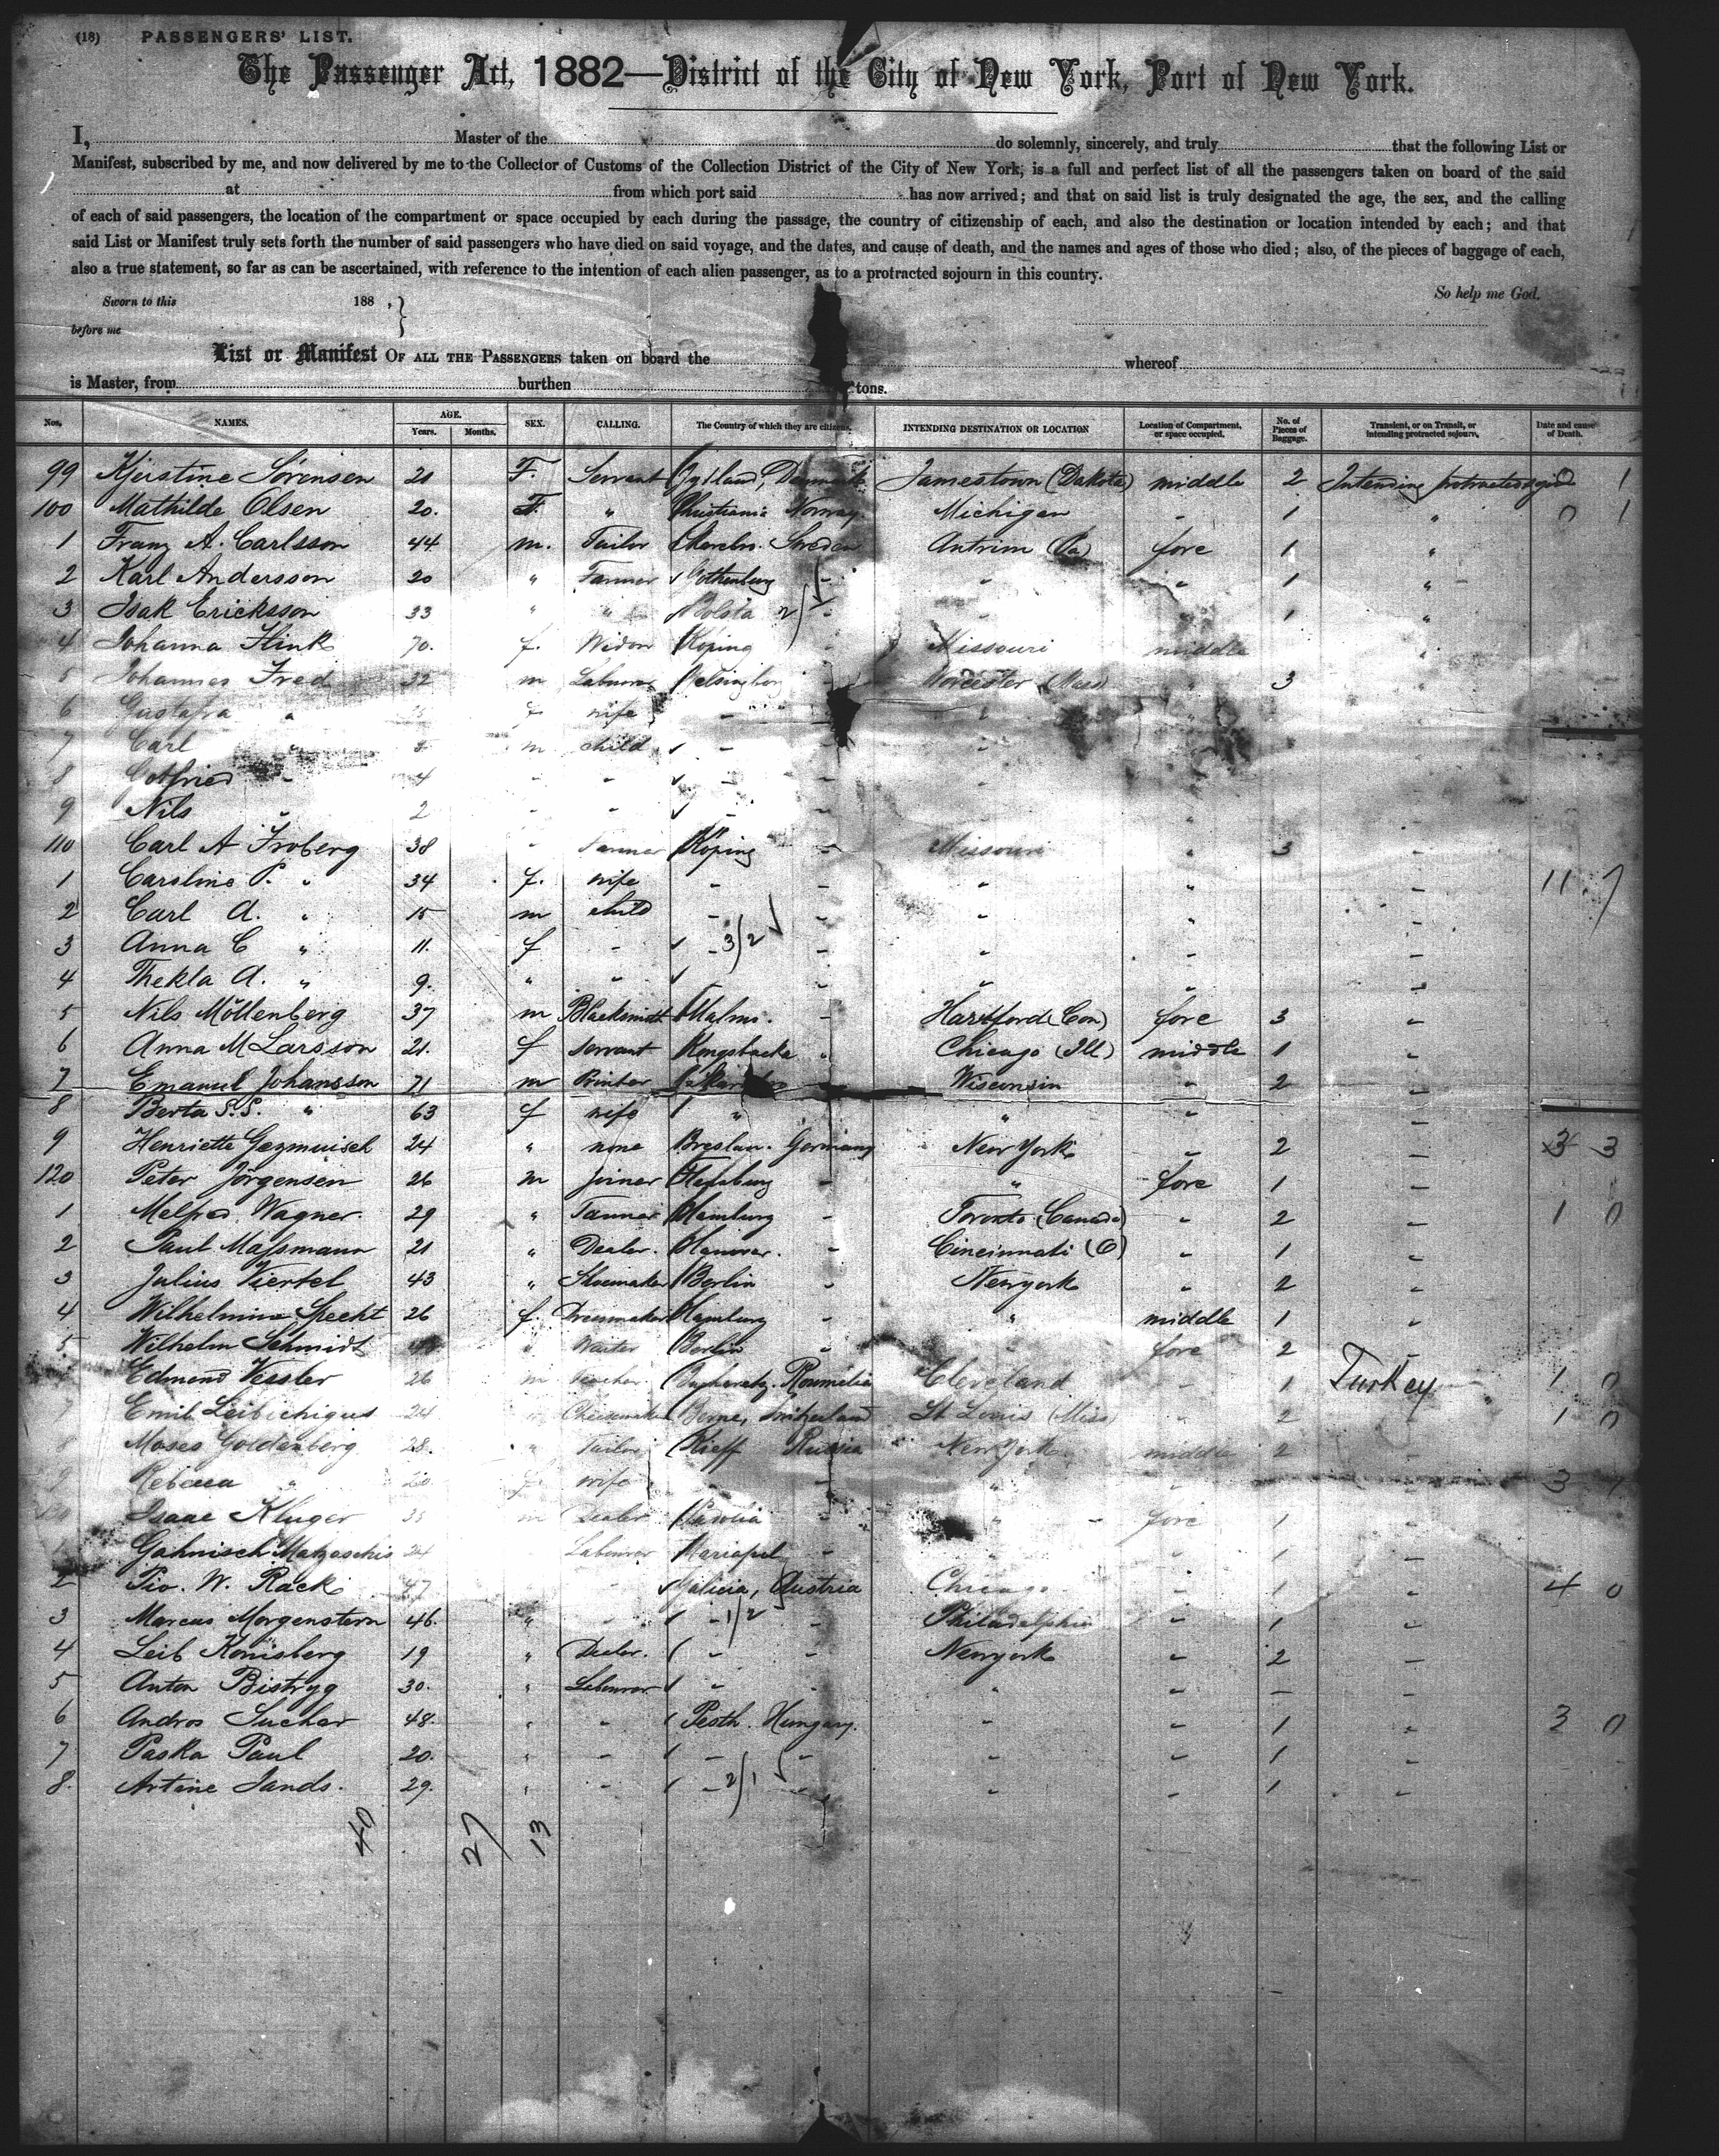 (18) PASSENGERS' LIST.
The Passenger Act, 1882—District of the City of New York, Port of New York.
I, Master of the do solemnly, sincerely, and truly that the following List or
Manifest, subscribed by me, and now delivered by me to the Collector of Customs of the Collection District of the City of New York, is a full and perfect list of all the passengers taken on board of the said
at from which port said has now arrived; and that on said list is truly designated the age, the sex, and the calling
of each of said passengers, the location of the compartment or space occupied by each during the passage, the country of citizenship of each, and also the destination or location intended by each; and that
said List or Manifest truly sets forth the number of said passengers who have died on said voyage, and the dates, and cause of death, and the names and ages of those who died; also, of the pieces of baggage of each,
also a true statement, so far as can be ascertained, with reference to the intention of each alien passenger, as to a protracted sojourn in this country.
So help me God.
Sworn to this 188 , }
before me
List or Manifest OF ALL THE PASSENGERS taken on board the whereof
is Master, from burthen tons.
Nos. NAMES. AGE. Years. Months. SEX. CALLING. The Country of which they are citizens. INTENDING DESTINATION OR LOCATION Location of Compartment, or space occupied. No. of Pieces of Baggage. Transient, or on Transit, or intending protracted sojourn. Date and cause of Death.
99 Kjerstine Sörensen 21 F. Servant Jylland, Denmark Jamestown (Dakota) middle 2 Intending protracted 0 1
100 Mathilde Olsen 20. F. " Christiania Norway. Michigan " 1 " 0 1
1 Franz A. Carlsson 44 m. Tailor Sweden Antrim (Pa) fore 1 "
2 Karl Andersson 20 " Farmer Gothenburg " " " 1 "
3 Isak Ericksson 33 " " 2/ " 1
4 Johanna Flink 70. f. Widow Köping " Missouri middle "
5 Johannes Fred 32 m Labourer Helsingborg " Worcester (Mass) " 3
6 Gustafva " f wife " " "
7 Carl " m child " "
8 Gotfried " 4 " " " " "
9 Nils " 2 " " " "
110 Carl A Froberg 38 " Farmer Köping " Missouri " 3 "
1 Caroline P. " 34 f. wife " " " " " 11 7
2 Carl A. " 15 m child " " " " "
3 Anna C " 11. f " " 3/2 " " " "
4 Thekla A. " 9. " " " " " "
5 Nils Möllenberg 37 m Blacksmith Malmö. " Hartford (Con) fore 3 "
6 Anna M Larsson 21. f servant Kongsbacka " Chicago (Ill) middle 1 "
7 Emanuel Johansson 71 m Printer Wisconsin " 2 "
8 Berta S.S. " 63 f wife " " " "
9 Henriette 24 " none Breslau. Germany New York " 2 " 3
120 Peter Jörgensen 26 m joiner " " fore 1 "
1 Wagner. 29 " Hamburg " Toronto (Canada) " 2 " 1 0
2 Paul Massmann 21 " Dealer. Hanover. " Cincinnati (O) " 1 "
3 Julius Viertel 43 " Shoemaker Berlin " Newyork " 2 "
4 Wilhelmine Specht 26 f. Dressmaker Hamburg " " middle 1 "
5 Wilhelm Schmidt " Waiter Berlin " " fore 2 "
Edmond 26 m Teacher Roumelia Cleveland " 1 Turkey 1 0
7 Emil 24 " Cheesemaker Berne, Switzerland St Louis (Miss) " 2 1 0
8 Moses Goldenberg 28. " Tailor Kieff Russia New York middle 2 "
9 Rebecca " 20 f wife " " " 3 1
Isaac Kluger m Dealer Padolia " fore 1 "
24 Labourer Mariapol " " 1 "
2 W. Rack 47 Galicia, Austria Chicago " 1 " 4 0
3 Marcus Morgenstern 46. " " " 1/2 " Philadelphia " 1 "
4 Leib Könisberg 19 " Dealer. " " Newyork " 2 "
5 Anton Bistryg 30. " Labourer " " " – "
6 Andros Suchar 48. " " Pesth. Hungary. " " 1 " 3 0
7 Paska Paul 20. " " " " " " 1 "
8. Artine Jands. 29. " " " 2/1 " " 1 "
40 27 13